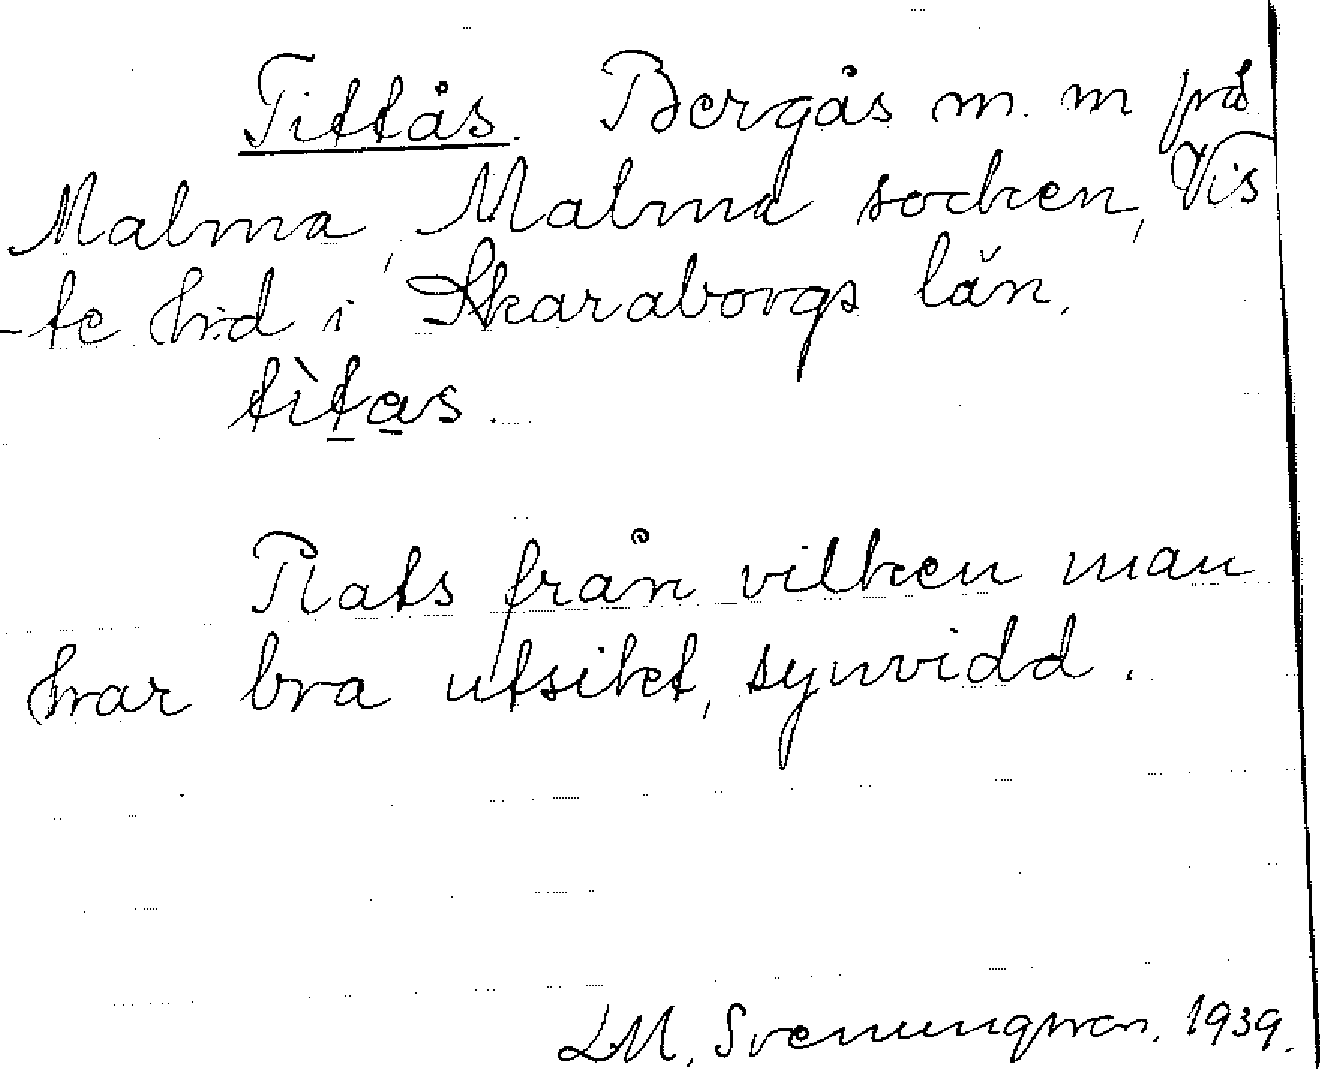 Tittås. Bergås m. m på
Malma, Malma socken, Vis
-te hd i Skaraborgs län.
tìtas.
Plats från vilken man
har bra utsiket, synvidd.
LM. Svenungsson. 1939.